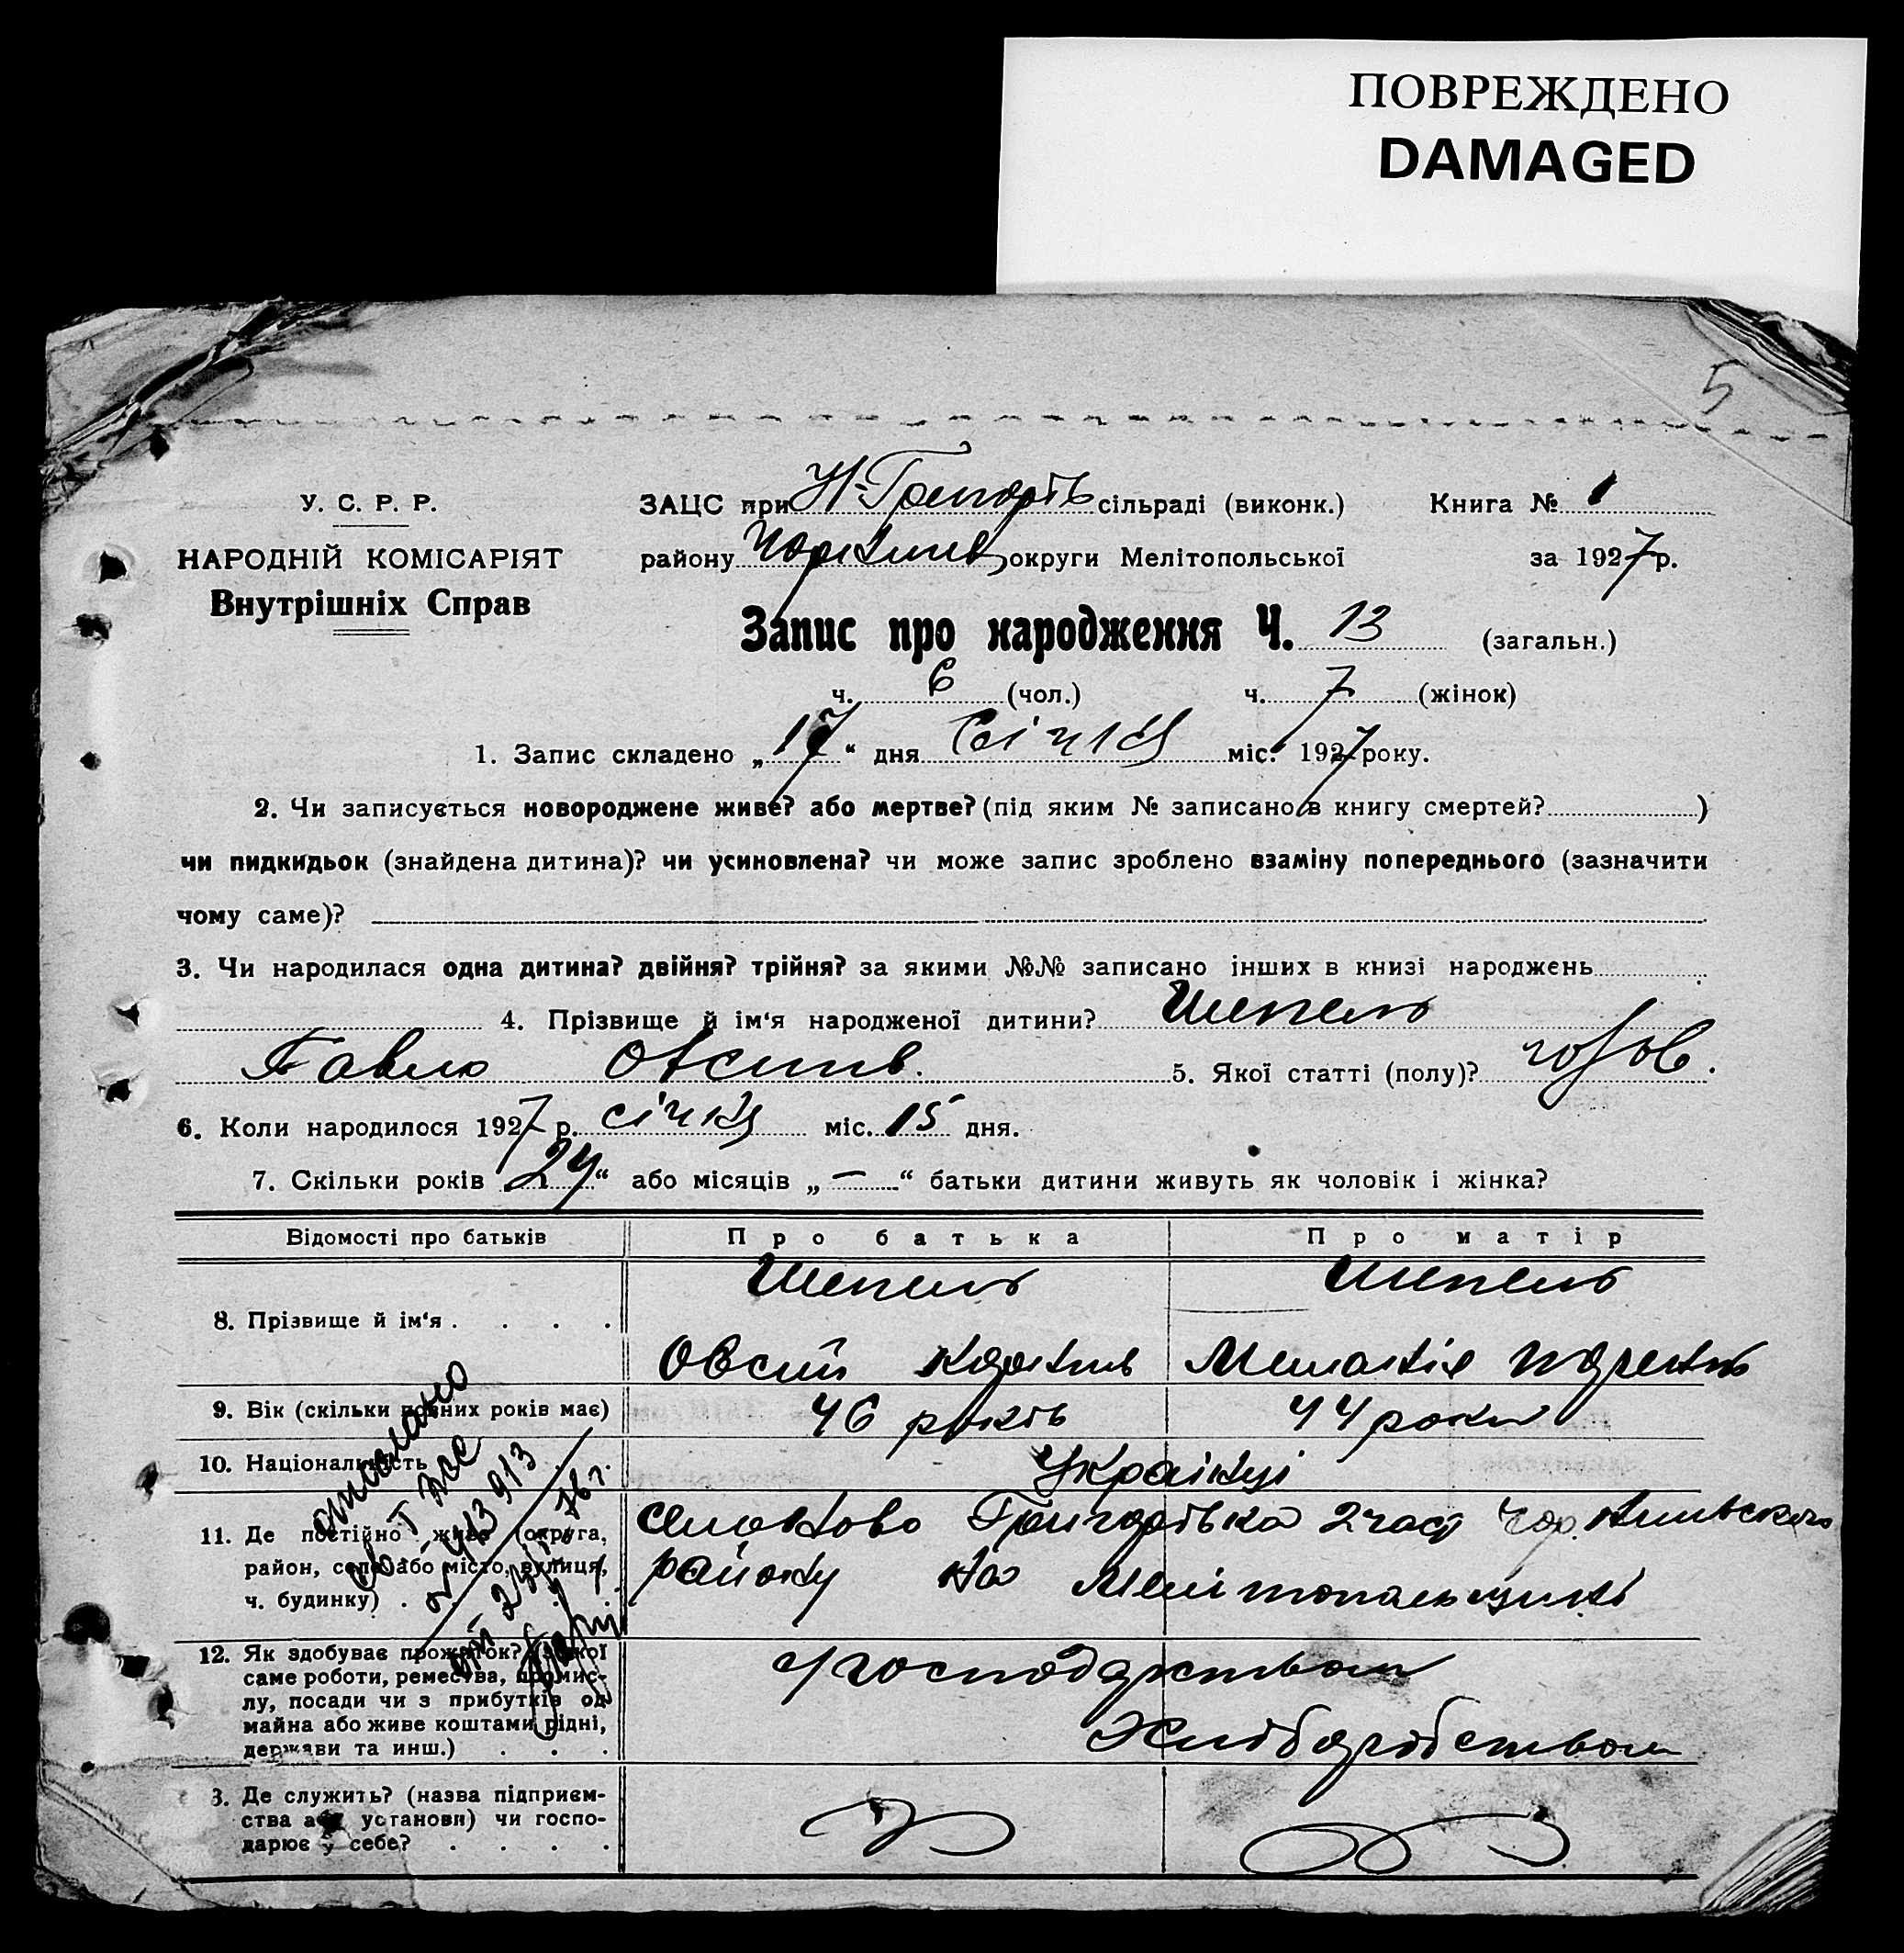 ПОВРЕЖДЕНО
DAMAGED
5
У. С. Р. Р.
НАРОДНІЙ КОМІСАРІЯТ
Внутрішніх Справ
ЗАЦС при сільраді (виконк.) Книга № 1
району округи Мелітопольської за 1927 р.
Запис про народження Ч. 13 (загальн.)
ч. 6 (чол.) ч. 7 (жінок)
1. Запис складено „17“ дня Січня міс. 1927 року.
2. Чи записується новороджене живе? або мертве? (під яким № записано в книгу смертей? )
чи пидкидьок (знайдена дитина)? чи усиновлена? чи може запис зроблено взаміну попереднього (зазначити
чому саме)?
3. Чи народилася одна дитина? двійня? трійня? за якими №№ записано інших в книзі народжень
4. Прізвище й ім‘я народженої дитини? Шепель
Павло Овсиїв. 5. Якої статті (полу)? чолов.
6. Коли народилося 1927 р. січня міс. 15 дня.
7. Скільки років 24“ або місяців „—“ батьки дитини живуть як чоловік і жінка?
Відомості про батьків Про батька Про матір
8. Прізвище й ім‘я . . . . Шепель Шепель
Овсий Меланія
9. Вік (скільки повних років має) 46 років 44 роки
10. Національність Українці
11. Де постійно живе (округа,
район, село або місто, вулиця,
ч. будинку) . . .
Григорівка 2 част Чор.
району на Мелітопольщині
12. Як здобуває прожиток? (з якої
саме роботи, ремества, промис-
лу, посади чи з прибутків од
майна або живе коштами рідні,
держави та инш.) . . .
господарством
Хліборобством
3. Де служить? (назва підприєм-
ства або установи) чи госпо-
дарює у себе? . . . .
443913
76 г.